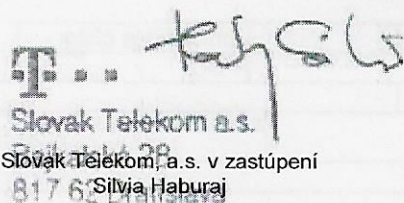 T
Slovak Telekom a.s.
Bajkalská 28
Slovak Telekom, a.s. v zastúpení
817 62 Bratislava
Silvia Haburaj